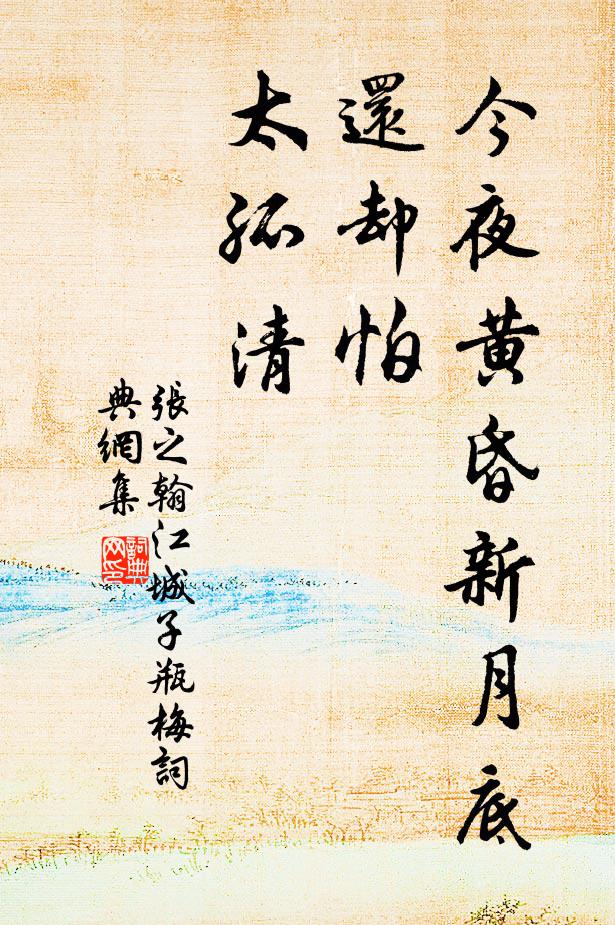 今夜黄昏新月底
還却怕
太孤清
張之翰江城子瓶梅詞
典網集
詞典
网印